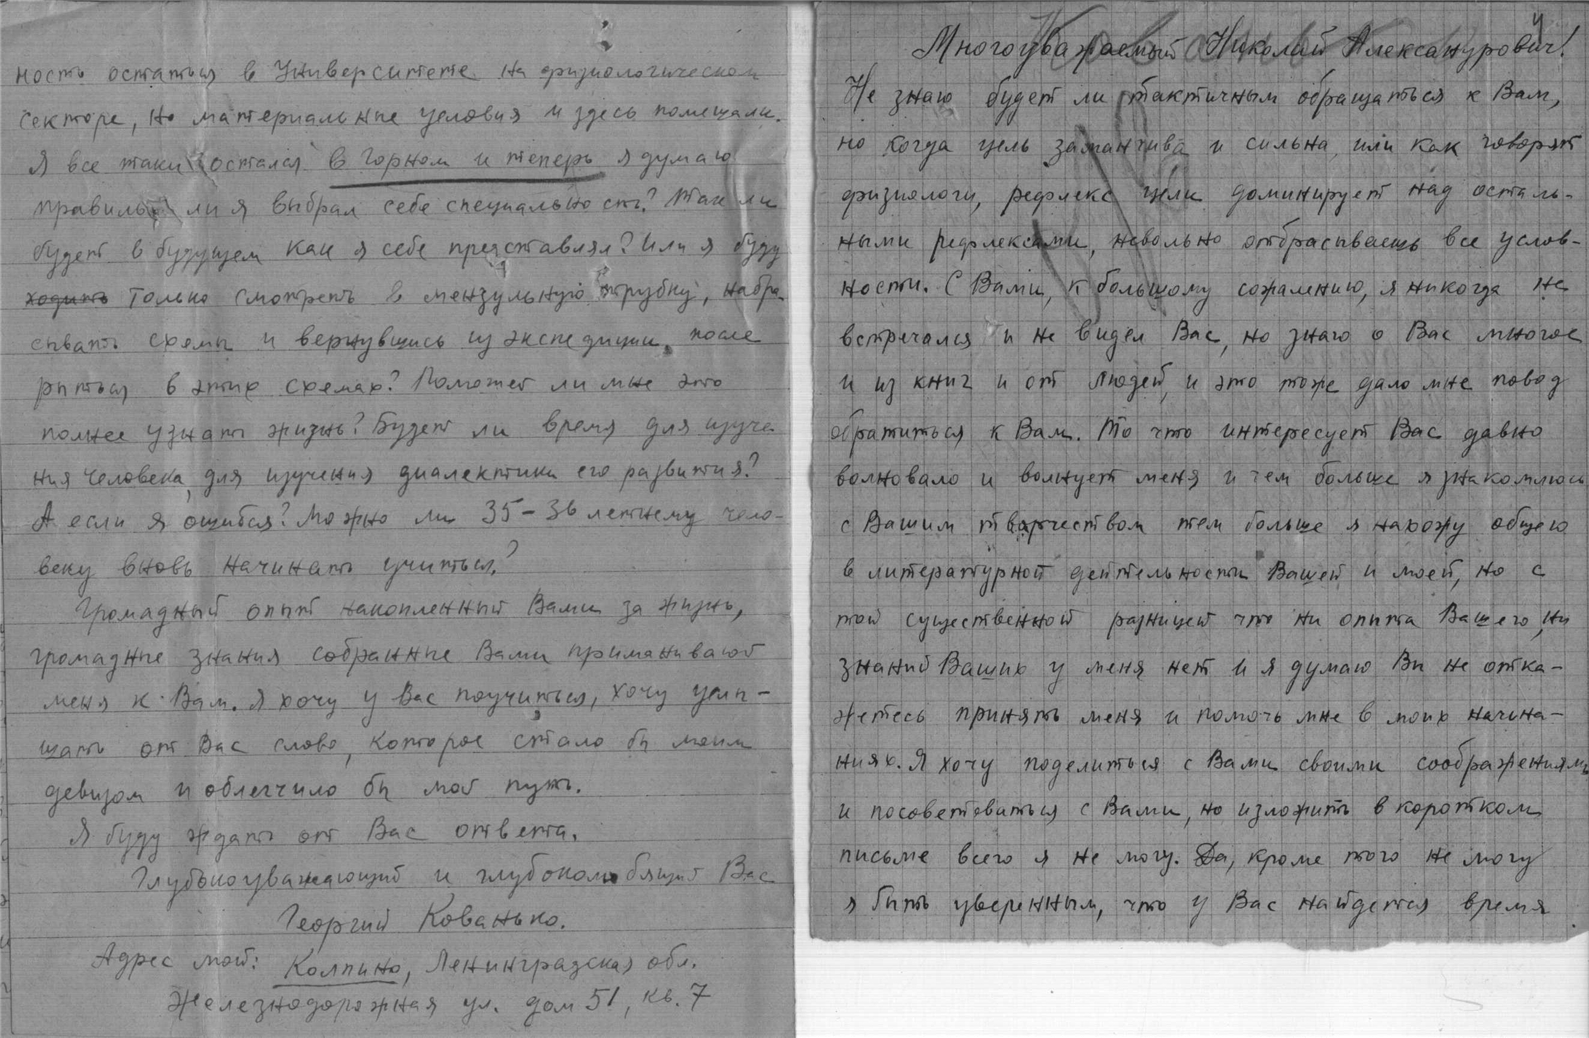 ность остаться в Университете на физиологическом
секторе, но материальные условия и здесь помешали.
Я все таки остался в Горном и теперь я думаю
правильно ли я выбрал себе специальность? Так ли
будет в будущем как я себе представлял? Или я буду
ходить только смотреть в мензульную трубку, набра-
сывать схемы и вернувшись из экспедиции, после
рыться в этих схемах? Поможет ли мне это
полнее узнать жизнь? Будет ли время для изуче
ния человека, для изучения диалектики его развития?
А если я ошибся? Можно ли 35-36 летнему чело-
веку вновь начинать учиться?
Громадный опыт накопленный Вами за жизнь,
громадные знания собранные Вами приманивают
меня к Вам. Я хочу у Вас поучиться, хочу услы-
шать от Вас слово, которое стало бы моим
девизом и облегчило бы мой путь.
Я буду ждать от Вас ответа.
Глубокоуважающий и глубоколюбящий Вас
Георгий Кованько.
Адрес мой: Колпино, Ленинградская обл.
Железнодорожная ул. дом 51, кв. 7
4
Многоуважаемый Николай Александрович!
Не знаю будет ли тактичным обращаться к Вам,
но когда цель заманчива и сильна, или как говорят
физиологи, рефлекс цели доминирует над осталь-
ными рефлексами, невольно отбрасываешь все услов-
ности. С Вами, к большому сожалению, я никогда не
встречался и не видел Вас, но знаю о Вас многое
и из книг и от людей, и это тоже дало мне повод
обратиться к Вам. То что интересует Вас давно
волновало и волнует меня и чем больше я знакомлюсь
с Вашим творчеством тем больше я нахожу общего
в литературной деятельности Вашей и моей, но с
той существенной разницей что ни опыта Вашего, ни
знаний Ваших у меня нет и я думаю Вы не отка-
жетесь принять меня и помочь мне в моих начина-
ниях. Я хочу поделиться с Вами своими соображениями
и посоветоваться с Вами, но изложить в коротком
письме всего я не могу. Да, кроме того не могу
я быть уверенным, что у Вас найдется время